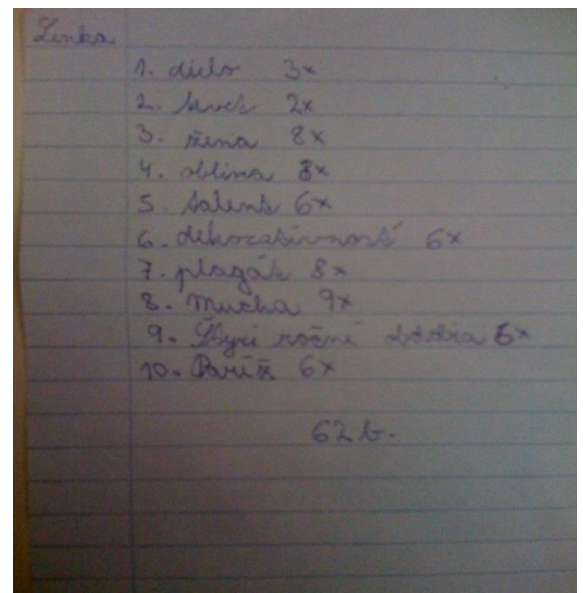 Lenka
1. dielo 3x
2. kvet 2x
3. žena 8x
4. oblina 8x
5. talent 6x
6. dekoratívnosť 6x
7. plagát 8x
8. Mucha 9x
9. Štyri ročné obdobia 6x
10. Paríž 6x
62 b.